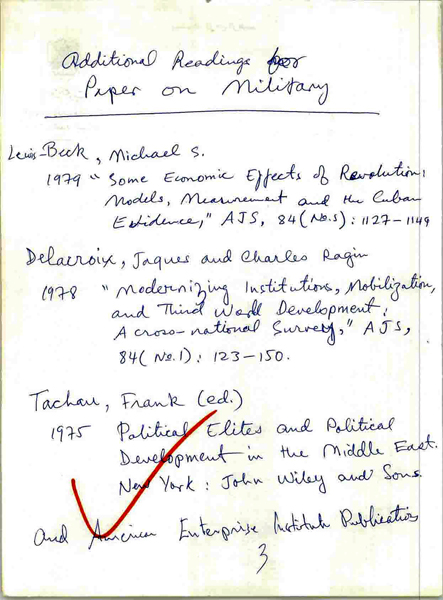 Additional Readings for
Paper on Military
Lewis-Beck, Michael S.
1979 "Some Economic Effects of Revolution:
Models, Measurement and the Cuban
Evidence," AJS, 84(No.5): 1127-1149
Delacroix, Jaques and Charles Ragin
1978 "Modernizing Institutions, Mobilization,
and Third World Development:
A cross-national Survey," AJS,
84(No.1): 123-150.
Tachau, Frank (ed.)
1975 Political Elites and Political
Development in the Middle East.
New York: John Wiley and Sons.
and American Enterprise Institute Publications
3